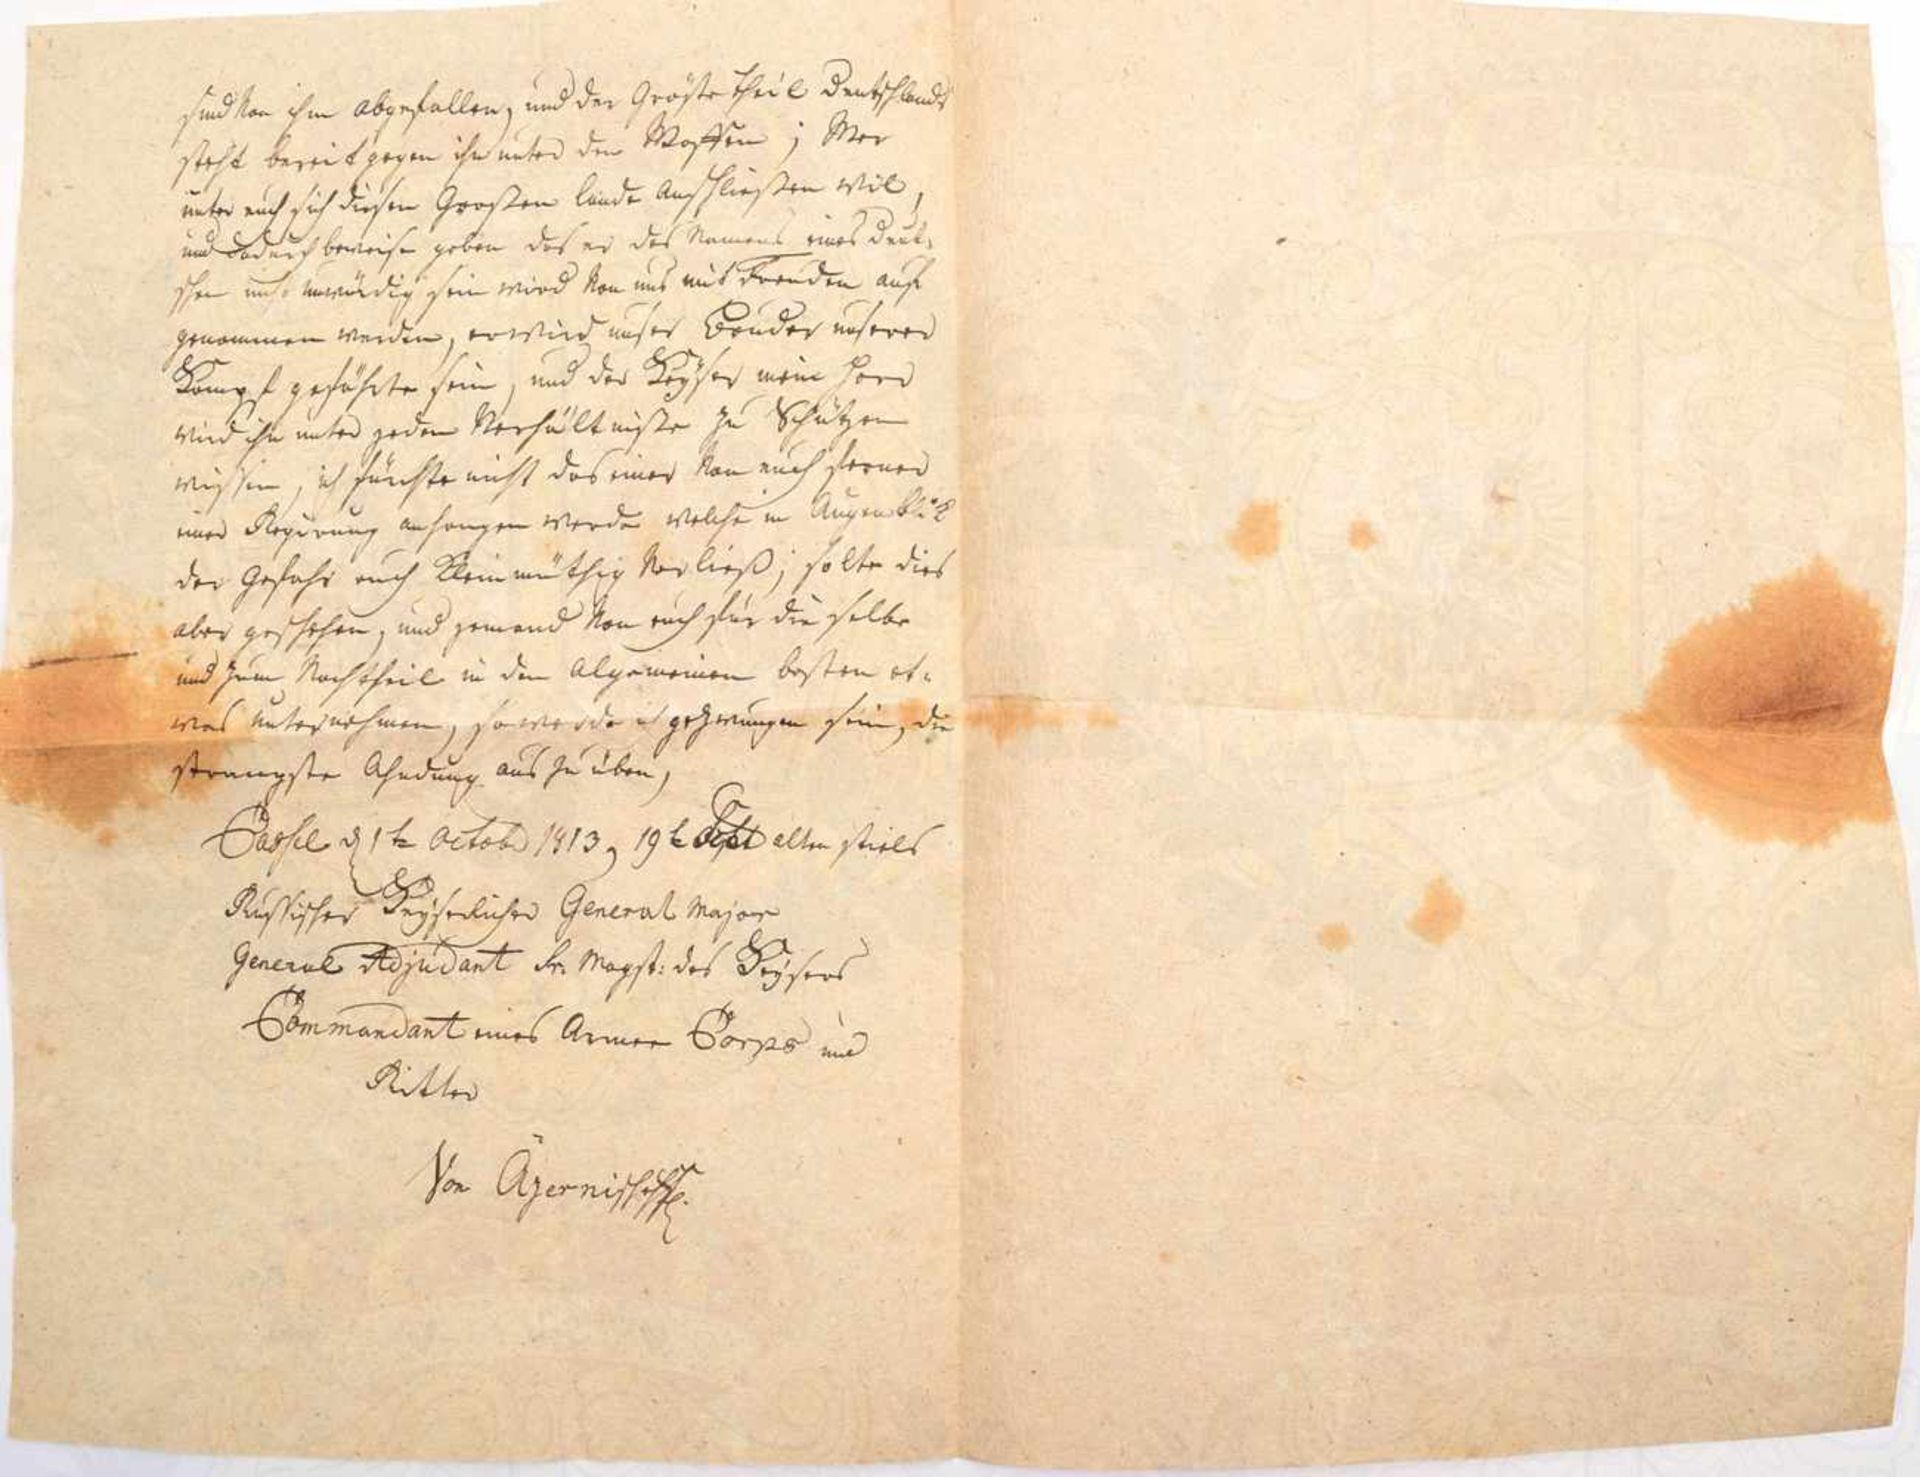 sind von ihm abgefallen, und der Gröste Theil Deutschlands
steht bereit gegen ihn unter den Waffen ; Wer
unter euch sich diesen Großen bunde Anschließen wil,
und dadurch beweise geben das er des Namens eines Deut-
schen nicht unwürdig sein wird von uns mit Freuden auf
genommen werden, er wird unser Bruder unserer
Kampf gefährte sein, und der Keyser mein Herr
wird ihn unter jeden Verhältniße zu Schützen
wissen, ich fürchte nicht das einer von euch ferner
einer Regierung anhangen werde welche in Augenblik
der Gefahr euch Kleinmüthig verließ ; solte dies
aber geschehen, und jemand von euch für die selbe
und zum Nachtheil in den Algemeinen besten et-
was unternehmen, so werde ich gezwungen sein, die
strengste Ahndung aus zu üben,
Cassel d 1t Octob 1813, 19t Sept alten stiels
Russischer Keyserlicher General Major
General Adjudant Sr. Mayst: des Keysers
Commandant eines Armee Corps und
Ritter
Von Czernischeff.